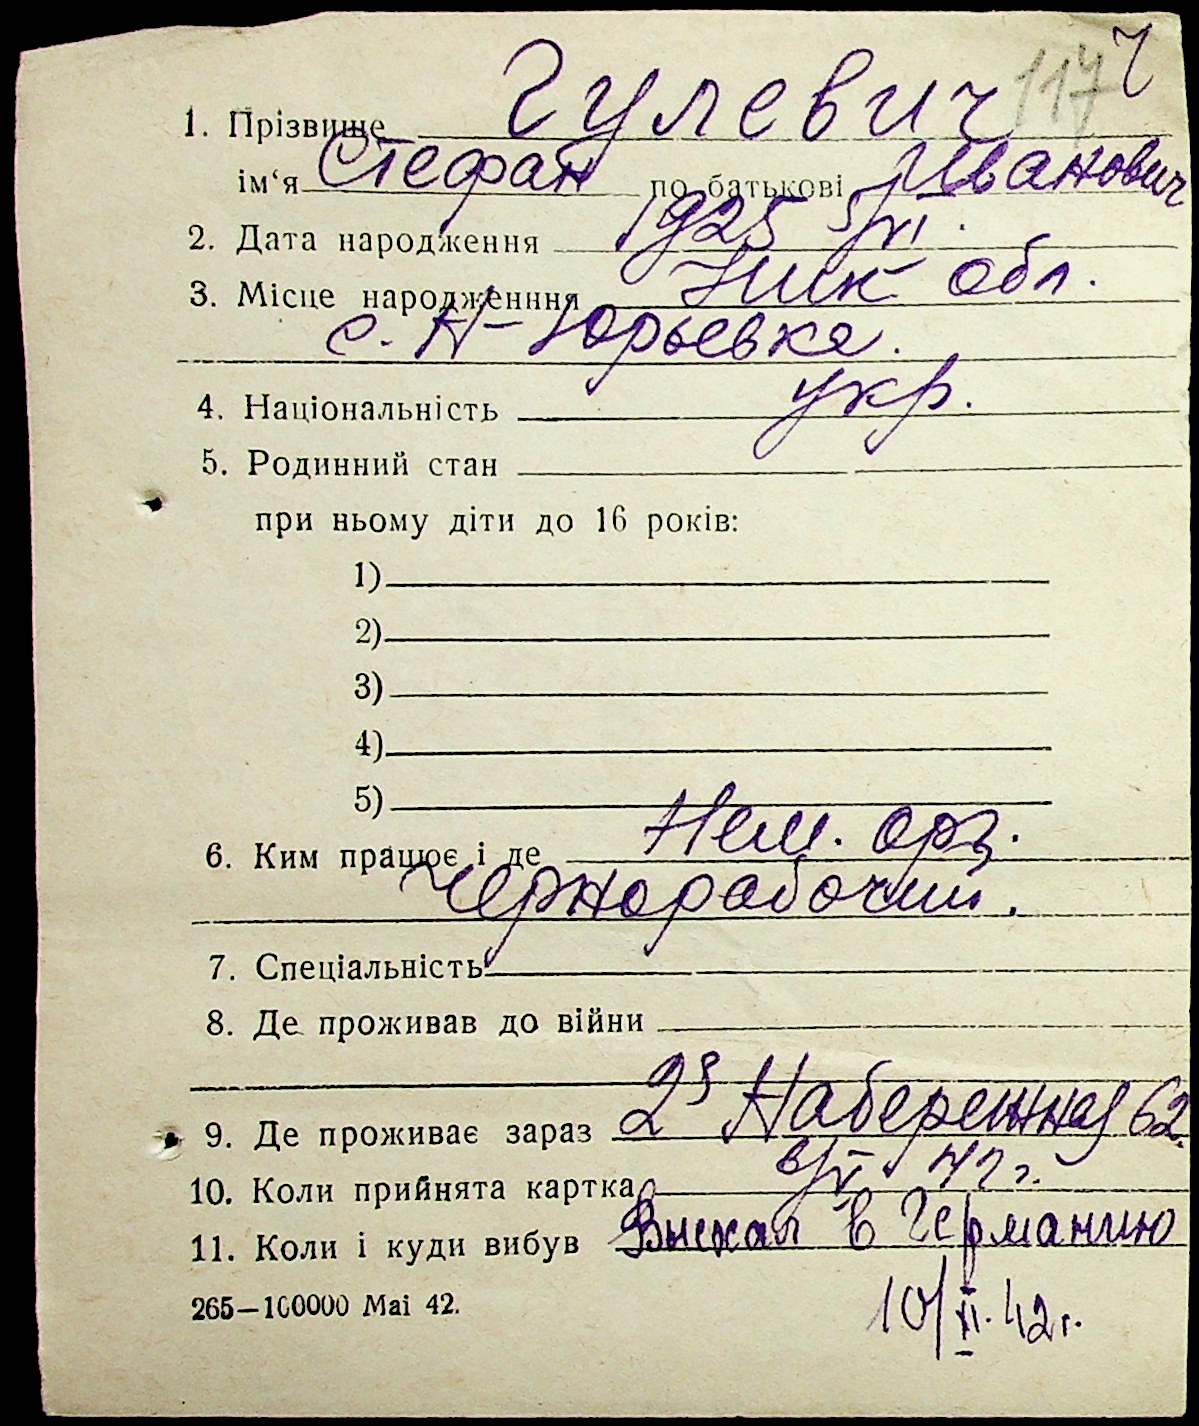 Ч
117
1. Прізвище Гулевич
ім'я Стефан по батькові Иванович
2. Дата народження 1925 5/VI.
3. Місце народженння Ник обл.
с. Н-Юрьевка.
4. Національність укр.
5. Родинний стан
при ньому діти до 16 років:
1)
2)
3)
4)
5)
6. Ким працює і де Нем. орг.
Чернорабочий.
7. Спеціальність
8. Де проживав до війни
9. Де проживає зараз 2я Набережная 62.
10. Коли прийнята картка 6/V 42 г.
11. Коли і куди вибув Выехал в Германию
265—100000 Mai 42.
10/II. 42г.